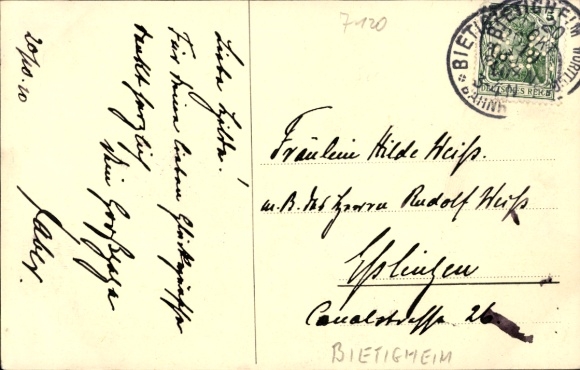 7-120
BIETIGHEIM
BAHNH
DEUTSCHES REICH
20/10.20
Liebe Hilda!
Für deinen lieben Glückwunsch
dankt herzlich
dein
Fräulein Hilde Weiß.
m. B. des Herrn Rudolf Weiß
Esslingen
Canalstrasse 26.
BIETIGHEIM